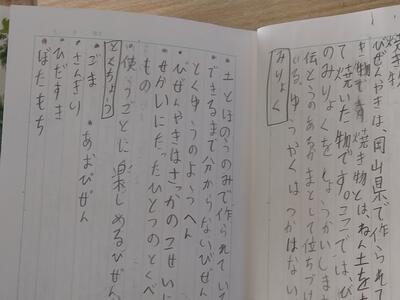 焼き物
びぜんやきは、岡山県で作られて
き物で、焼き物とは、ねん土を
て焼いた物です。ここでは、び
のみりょくをしょうかいしま
伝とうのあるかまとして位ちづけ
いる。ゆうやくはつかはない
みりょく
・土とほのうのみで作られてい
・できるまで分からないびぜん
とくゆうのようへん
・びぜんやきはさっかのこせいに
せかいにたったひとつのとくべ
もの
・使うごとに楽しめるびぜん
とくちょう
・ごま ・あおびぜん
・さんぎり
・ひだすき
・ぼたもち